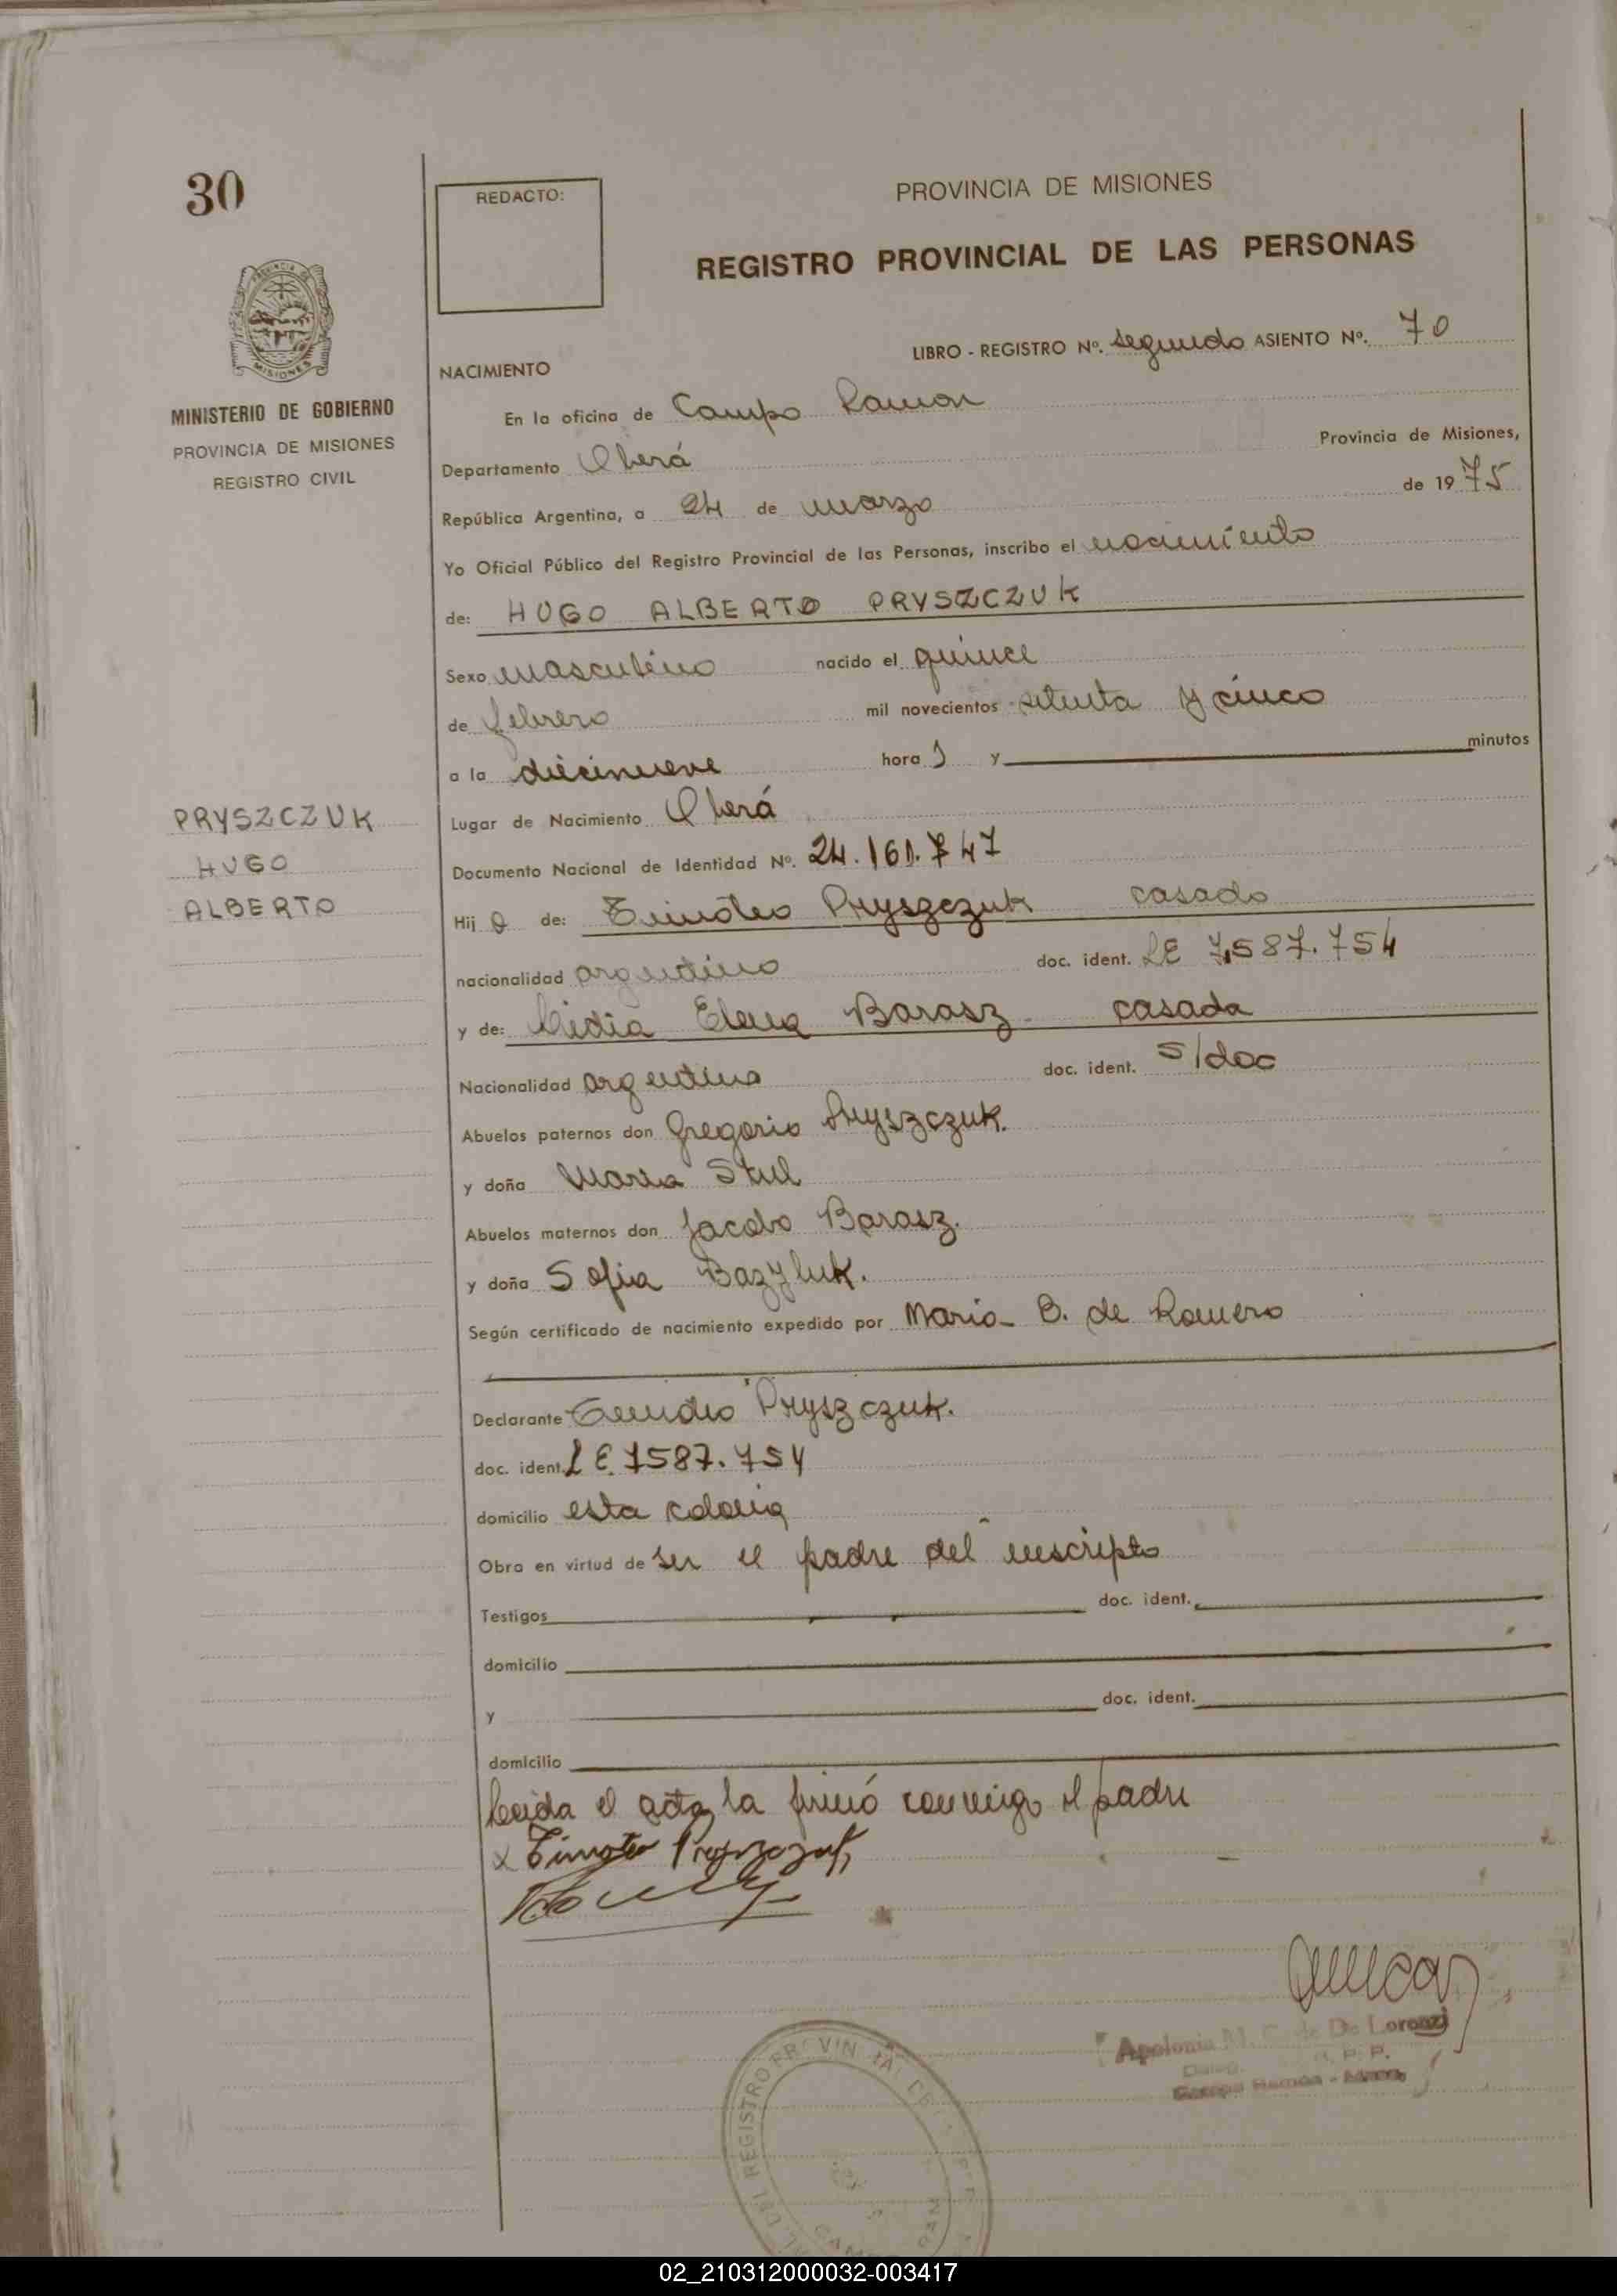 30
REDACTO:
PROVINCIA DE MISIONES
REGISTRO PROVINCIAL DE LAS PERSONAS
PROVINCIA DE
MISIONES
MINISTERIO DE GOBIERNO
PROVINCIA DE MISIONES
REGISTRO CIVIL
LIBRO - REGISTRO Nº. segundo ASIENTO Nº. 70
NACIMIENTO
En la oficina de Campo Ramon
Departamento Oberá Provincia de Misiones,
República Argentina, a 24 de marzo de 1975
Yo Oficial Público del Registro Provincial de las Personas, inscribo el nacimiento
de: HUGO ALBERTO PRYSZCZUK
Sexo masculino nacido el quince
de febrero mil novecientos setenta y cinco
a la diecinueve hora s y minutos
PRYSZCZUK
HUGO
ALBERTO
Lugar de Nacimiento Oberá
Documento Nacional de Identidad Nº. 24.161.747
Hij o de: Timoteo Pryszczuk casado
nacionalidad argentino doc. ident. LE 7,587.754
y de: Lidia Elena Barasz casada
Nacionalidad argentina doc. ident. S/doc
Abuelos paternos don Gregorio Pryszczuk.
y doña Maria Stul
Abuelos maternos don Jacobo Barasz.
y doña Sofia Bazyluk.
Según certificado de nacimiento expedido por Maria B. de Romero
Declarante Timoteo Pryszczuk.
doc. ident. LE. 7587.754
domicilio esta colonia
Obra en virtud de ser el padre del inscripto
Testigos doc. ident.
domicilio
y doc. ident.
domicilio
Leida el acta la firmó conmigo el padre
x Timoteo Pryszczuk
Apolonia M. C. de De Lorenzi
R. P. P.
Campo Ramón - Mnes.
DEL REGISTRO PROVINCIAL DE